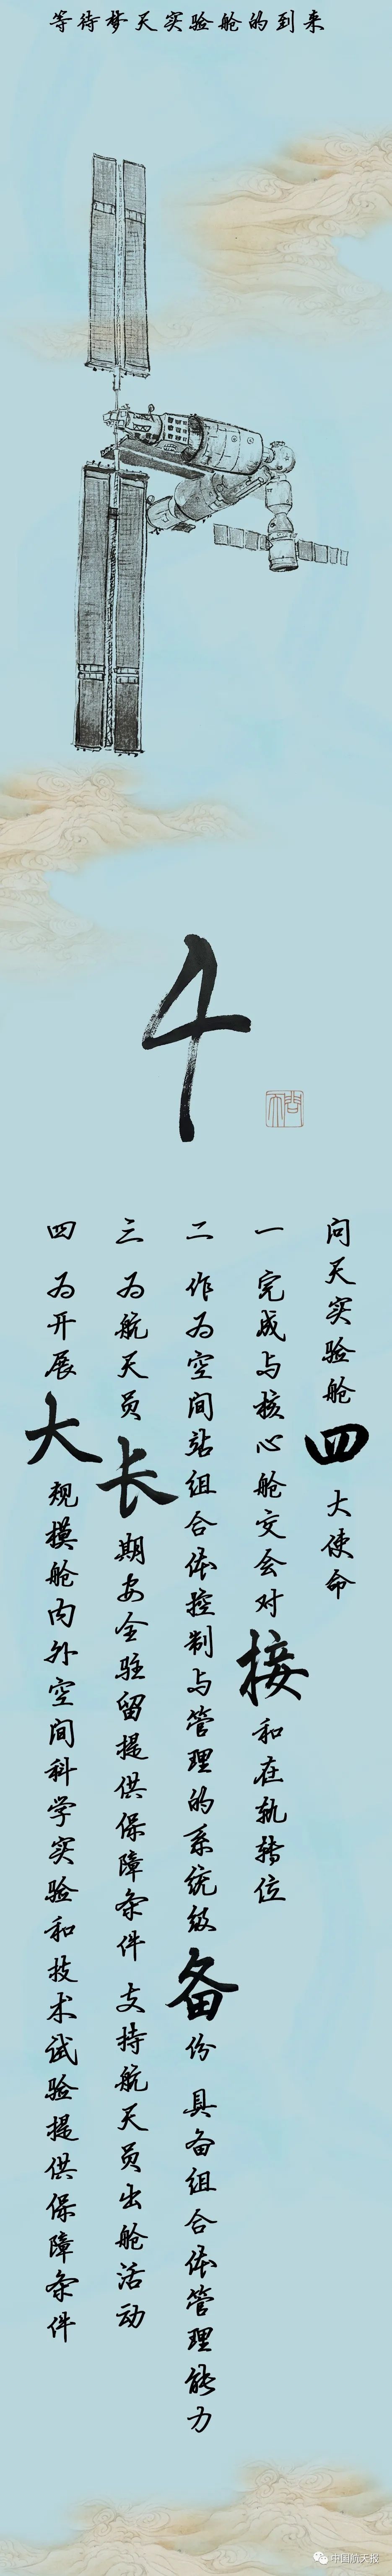 等待梦天实验舱的到来
4
问天
问天实验舱四大使命
一 完成与核心舱交会对接和在轨转位
二 作为空间站组合体控制与管理的系统级备份 具备组合体管理能力
三 为航天员长期安全驻留提供保障条件 支持航天员出舱活动
四 为开展大规模舱内外空间科学实验和技术试验提供保障条件
中国航天报